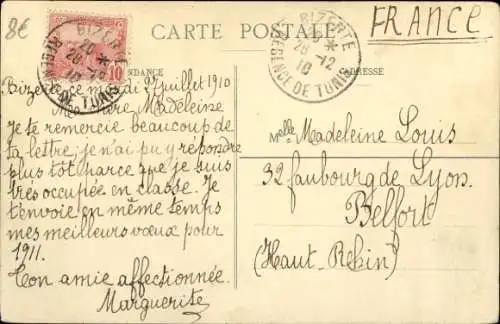 8€
CARTE POSTALE
FRANCE
BIZERTE
20 *
28 -12
10
REGENCE DE TUNIS
10
BIZERTE
28 -12
10
REGENCE DE TUNIS
NDANCE
ADRESSE
Bizerte ce mardi juillet 1910
Ma chère Madeleine
Je te remercie beaucoup de
ta lettre, je n'ai pu y répondre
plus tôt parce que je suis
très occupée en classe. Je
t'envoie en même temps
mes meilleurs vœux pour
1911.
Ton amie affectionnée.
Marguerite
Mlle Madeleine Louis
32 faubourg de Lyon.
Belfort
(Haut-Rhin)